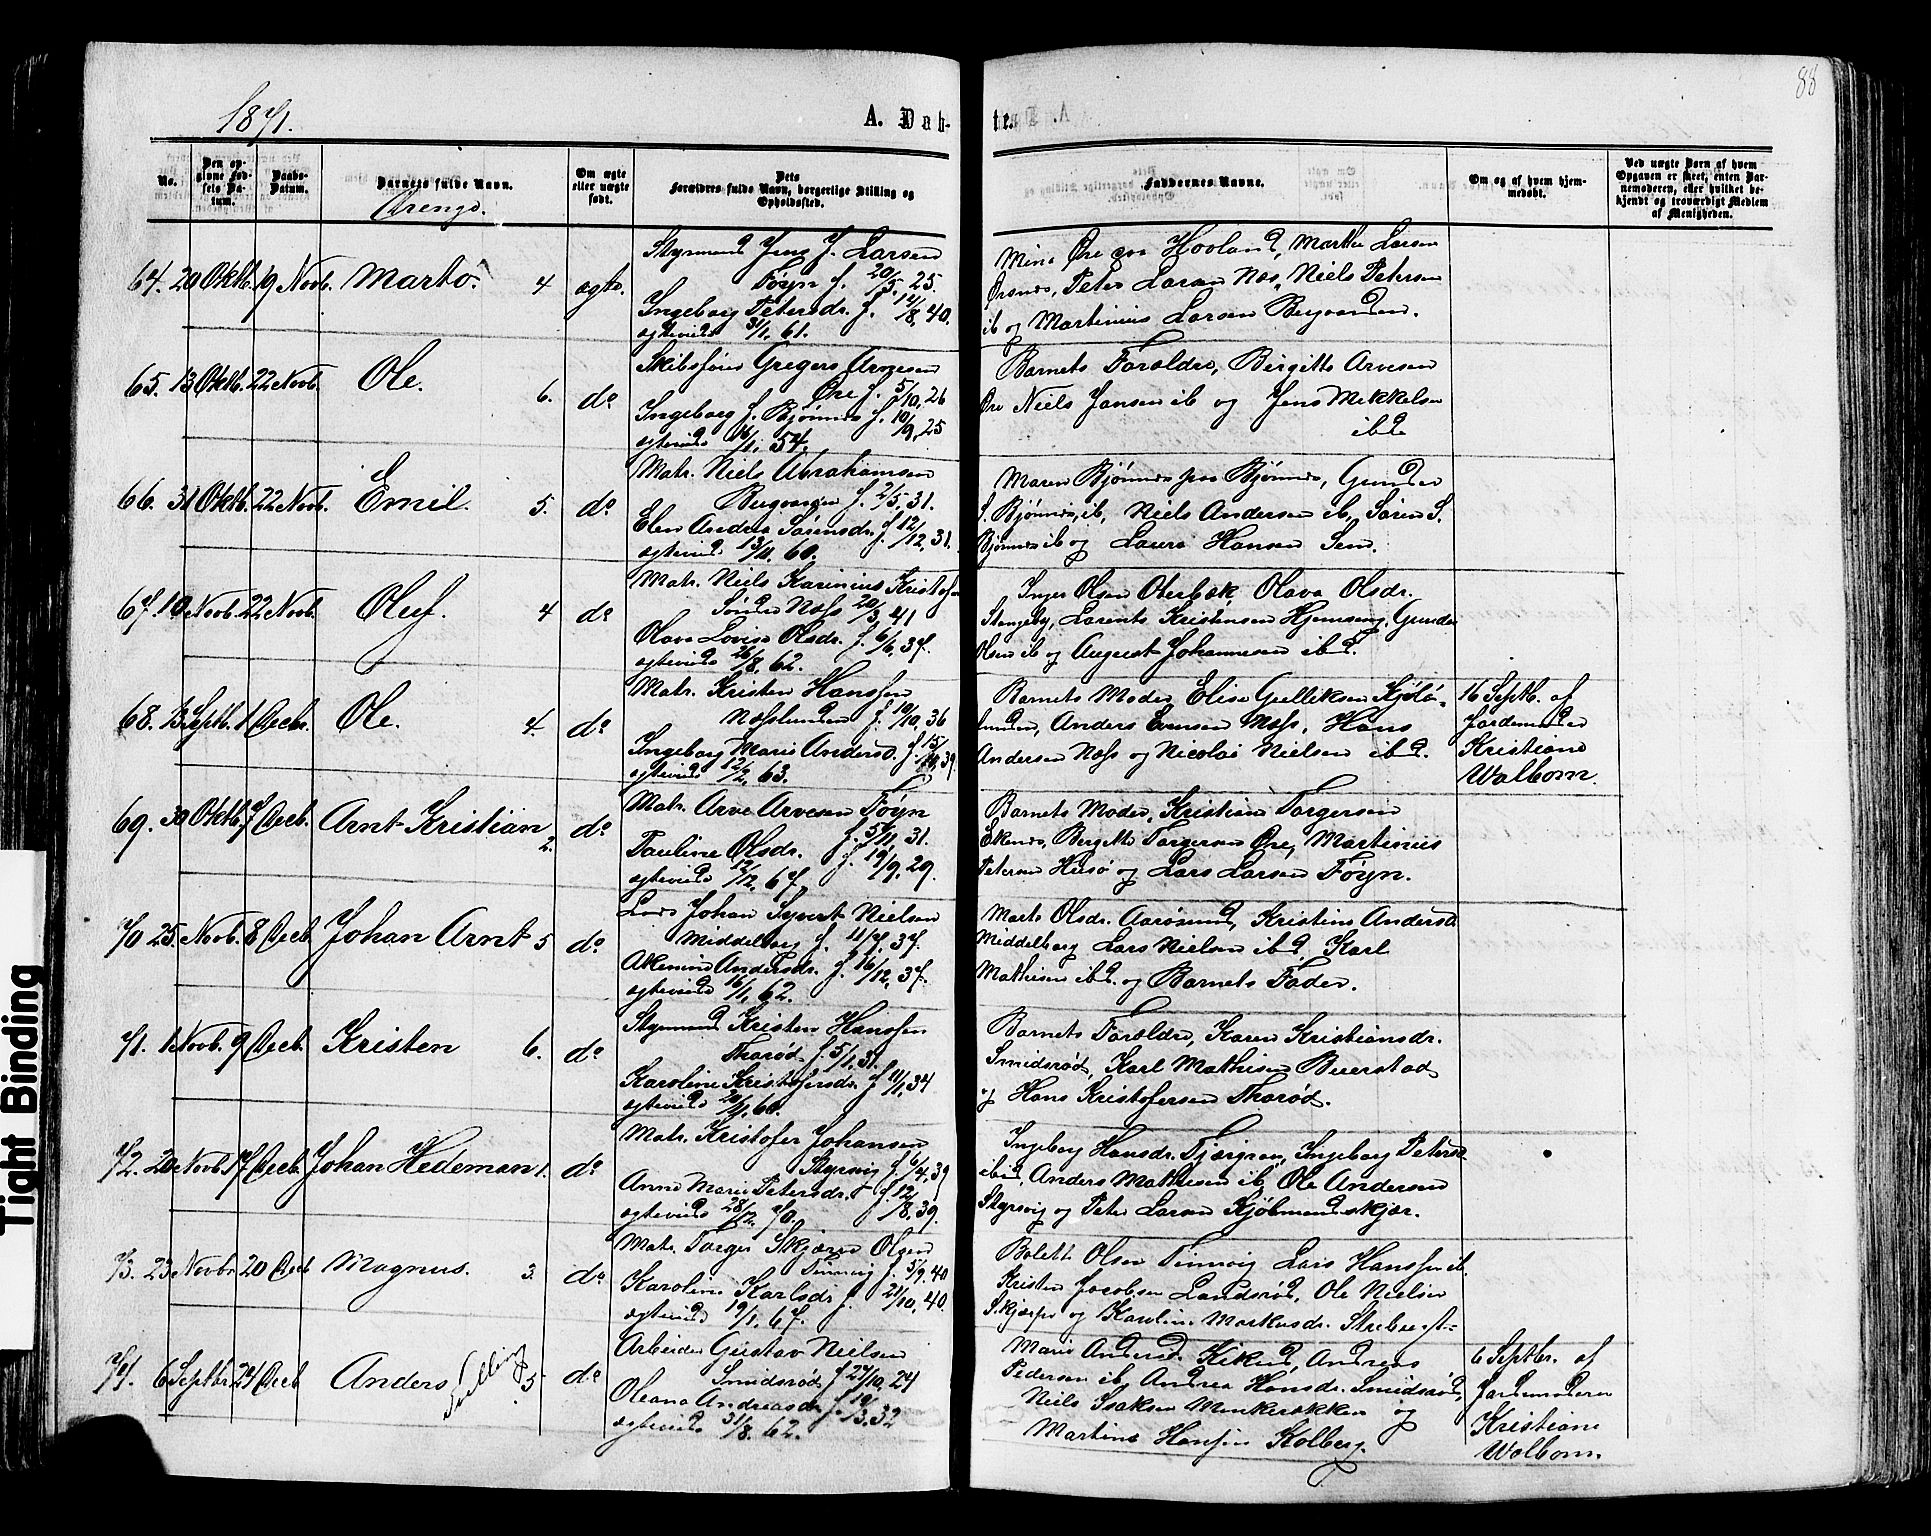 88
1871.
A. Døb-
te.
No.
Den opgivne Fødsels Datum.
Daabs-Datum.
Barnets fulde Navn.
Drenge.
Om ægte eller uægte født.
Dets Forældres fulde Navn, borgerlige Stilling og Opholdssted.
Faddernes Navne.
Om og af hvem hjemmedøbt.
Ved uægte Børn af hvem Opgaven er skeet, enten Barnemoderen, eller hvilket bekjendt og troværdigt Medlem af Menigheden.
64. 20 Oktb. 19 Novb. 4 ægte.
Styrmand Jens J. Larsen
Føyn f. 20/5. 25.
Ingeborg Petersdr. f. 12/8. 40.
ægteviede 31/1. 61.
Larsen Næs, Niels Petersen
ib og Martinius Larsen
65. 13 Oktb. 22 Novb. Ole. 6. do
Skibsfører Gregers Arvesen
Øre f. 5/10. 26
Ingeborg f. Bjønnes f. 10/9. 25
ægteviede 54.
Barnets Forældre, Birgitte Arvesen
Øre Niels Jansen ib og Jens Mikkelsen
ibd
66. 31 Oktb. 22 Novb. Emil. 5. do
Matr. Niels Abrahamsen
f. 2/5. 31.
Elen Andrea Sørensdr. f. 12/12. 31.
ægteviede 13/11. 60.
Maren Bjønnes paa Bjønnes, Gunder
S. Bjønnes, ib, Niels Andersen ib, Søren S.
Bjønnes ib og Laura Hansen Sem.
67. 10 Novb. 22 Novb. Oluf. 4 do
Matr. Niels Karinius Kristofersen
Søndre Næss 20/3. 41
Olava Lovise Olsdr. f. 6/6. 37.
ægteviede 26/8. 62.
Inger Olsen Oterbæk Olava Olsdr.
Stangeby, Larents Kristensen Hjemseng, Gunder
Olsen ib og August Johannesen ibd.
68. 13 Septb. 1 Decbr. Ole. 4. do
Matr. Kristen Hanssen
Næsslunden f. 19/10. 36
Ingeborg Marie Andersd. 39.
ægteviede 12/2. 63.
Barnets Moder, Elise Gulliksen
Anders Evensen Næss, Hans
Andersen Næss og Nicolai Nielsen ibd.
16 Septb. af
Jordemoder
Kristiane
Walbom.
69. 30 Oktb. 7 Decb. Arnt Kristian 2. do
Matr. Arve Arvesen Føyn
f. 5/11. 31.
Pauline Olsdr. f. 19/9. 29.
ægteviede 12/12. 67.
Barnets Moder, Kristiane Torgersen
Ekenes, Bergitte Torgersen Øre, Martinius
Petersen Husø og Lars Larsen Føyn.
70 25. Novb. 8 Decb. Johan Arnt 5 do
Lods Johan Syvert Nielsen
Middelborg f. 11/7. 37.
Andersdr. f. 16/12. 37.
ægteviede 16/1. 62.
Marte Olsdr. Aarøsund, Kristine Andersd.
Middelborg Lars Nielsen ibd. Karl
Mathisen ibd. og Barnets Fader.
71. 1 Novb. 9 Decb. Kristen 6. do
Styrmand Kristen Hanssen
Tharød f. 5/1. 31.
Karoline Kristofersdr. f. 11/1. 34
ægteviede 60.
Barnets Forældre, Karen Kristiansdr.
Smidsrød, Karl Mathisen Buerstad
og Hans Kristofersen Tharød.
72. 20 Novb. 17 Decb. Johan Hedeman 1. do
Matr. Kristofer Johansen
Styrsvig f. 6/4. 39
Anne Marie Petersdr. f. 12/8. 39.
ægteviede 28/12. 70.
Ingeborg Hansdr. Ingeborg Petersd.
ibid, Anders Mathisen ib, Ole Andersen
Styrsvig og Peter Larsen Kjøbmandskjær.
73. 23 Novbr 20 Decb Magnus. 3. do
Matr. Torger Skjærsø Olsen
f. 5/9. 40
Karoline Karlsdr f. 21/10. 40.
ægteviede 19/1. 67.
Bolett Olsen Lars Hanssen ib.
Kristen Jacobsen Landsrød, Ole Nielsen
og Karoline Markusdr.
74. 6 Septbr 24 Decb Anders Tvilling 5. do
Arbeider Gustav Nielsen
Smidsrød f. 27/10. 24
Oleana Andreasdr f. 19/3. 32
ægteviede 31/8. 62.
Marie Andersd. Andreas
Pedersen ib, Andrea Hansdr. Smidsrød,
Niels Isaksen Munkerækken og
Martine Hansen Kolberg.
6 Septbr. af
Jordemoderen
Kristiane
Walbom.
Tight Binding